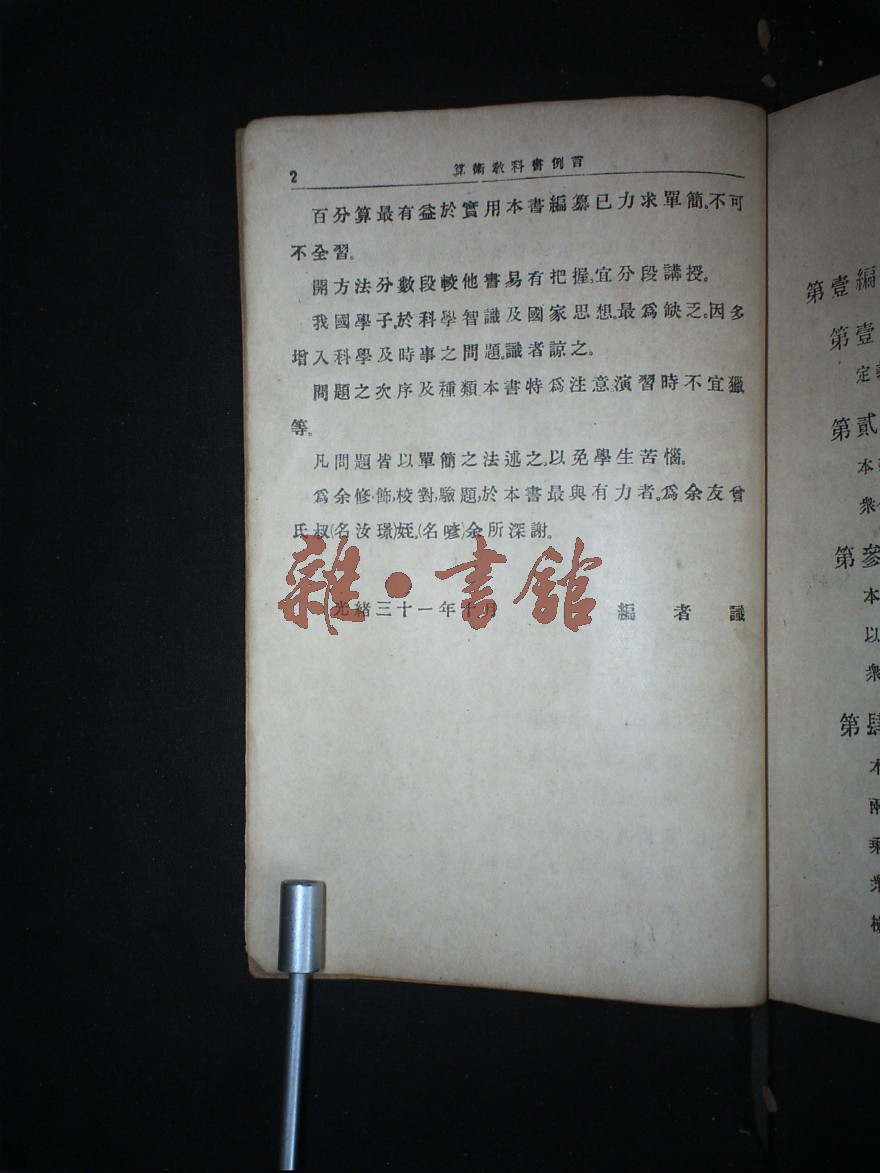 2 算術教科書例言
百分算最有益於實用本書編纂已力求單簡。不可
不全習。
開方法分數段較他書易有把握,宜分段講授。
我國學子,於科學智識及國家思想,最爲缺乏。因多
增入科學及時事之問題,識者諒之。
問題之次序及種類,本書特爲注意,演習時不宜獵
等。
凡問題皆以單簡之法述之,以免學生苦惱。
爲余修飾,校對,驗題,於本書最與有力者。爲余友曾
氏叔(名汝璟)姪,(名㗖)余所深謝。
光緒三十一年十月 編者識
雜·書館
第壹編
第壹
定義
第貳
本
衆
第參
本
以
衆
第肆
本
兩
乘
衆